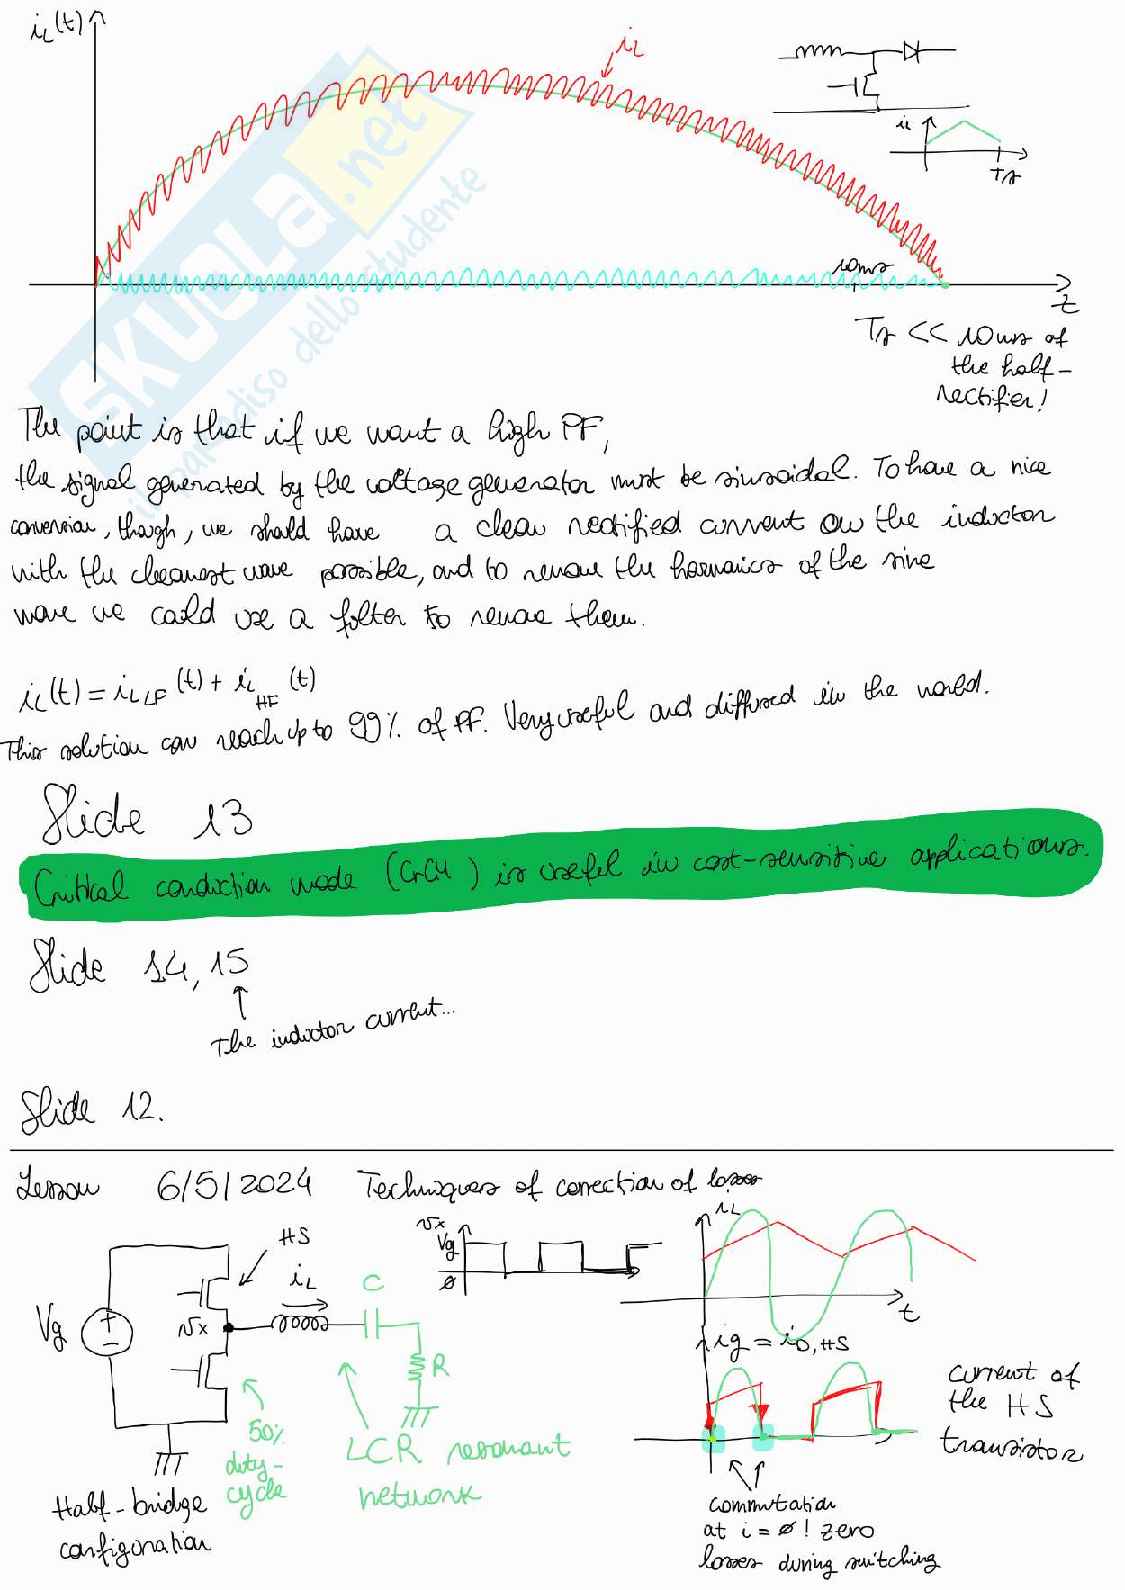 iL(t)
iL
iL
Ts
10ms
t
Ts << 10ms of
the half-
rectifier!
SKUOLA.net
il paradiso dello studente
The point is that if we want a high PF,
the signal generated by the voltage generator must be sinusoidal. To have a nice
conversion, though, we should have a clean rectified current on the inductor
with the cleanest wave possible, and to remove the harmonics of the sine
wave we could use a filter to remove them.
iL(t) = iL LF (t) + iL HF (t)
This solution can reach up to 99% of PF. Very useful and diffused in the world.
Slide 13
Critical conduction mode (CrCM) is useful in cost-sensitive applications.
Slide 14, 15
The inductor current...
Slide 12.
Lesson 6/5/2024 Techniques of correction of losses
HS
iL
C
Vg
+
-
vx
R
50%
duty-
cycle
LCR resonant
network
Half-bridge
configuration
vx
Vg
ø
iL
t
ig = iD,HS
current of
the HS
transistor
commutation
at i = ø! zero
losses during switching